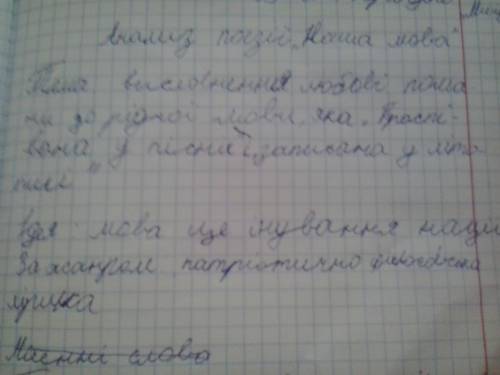 Анализ поезії "Наша мова"
Тема висловнення любові поша
ни до рідної мови, яка "Проспі-
вана у пісні і записана у літо
писі"
Ідея мова це існування нації
За жанром патріотично філософська
лірика
слова